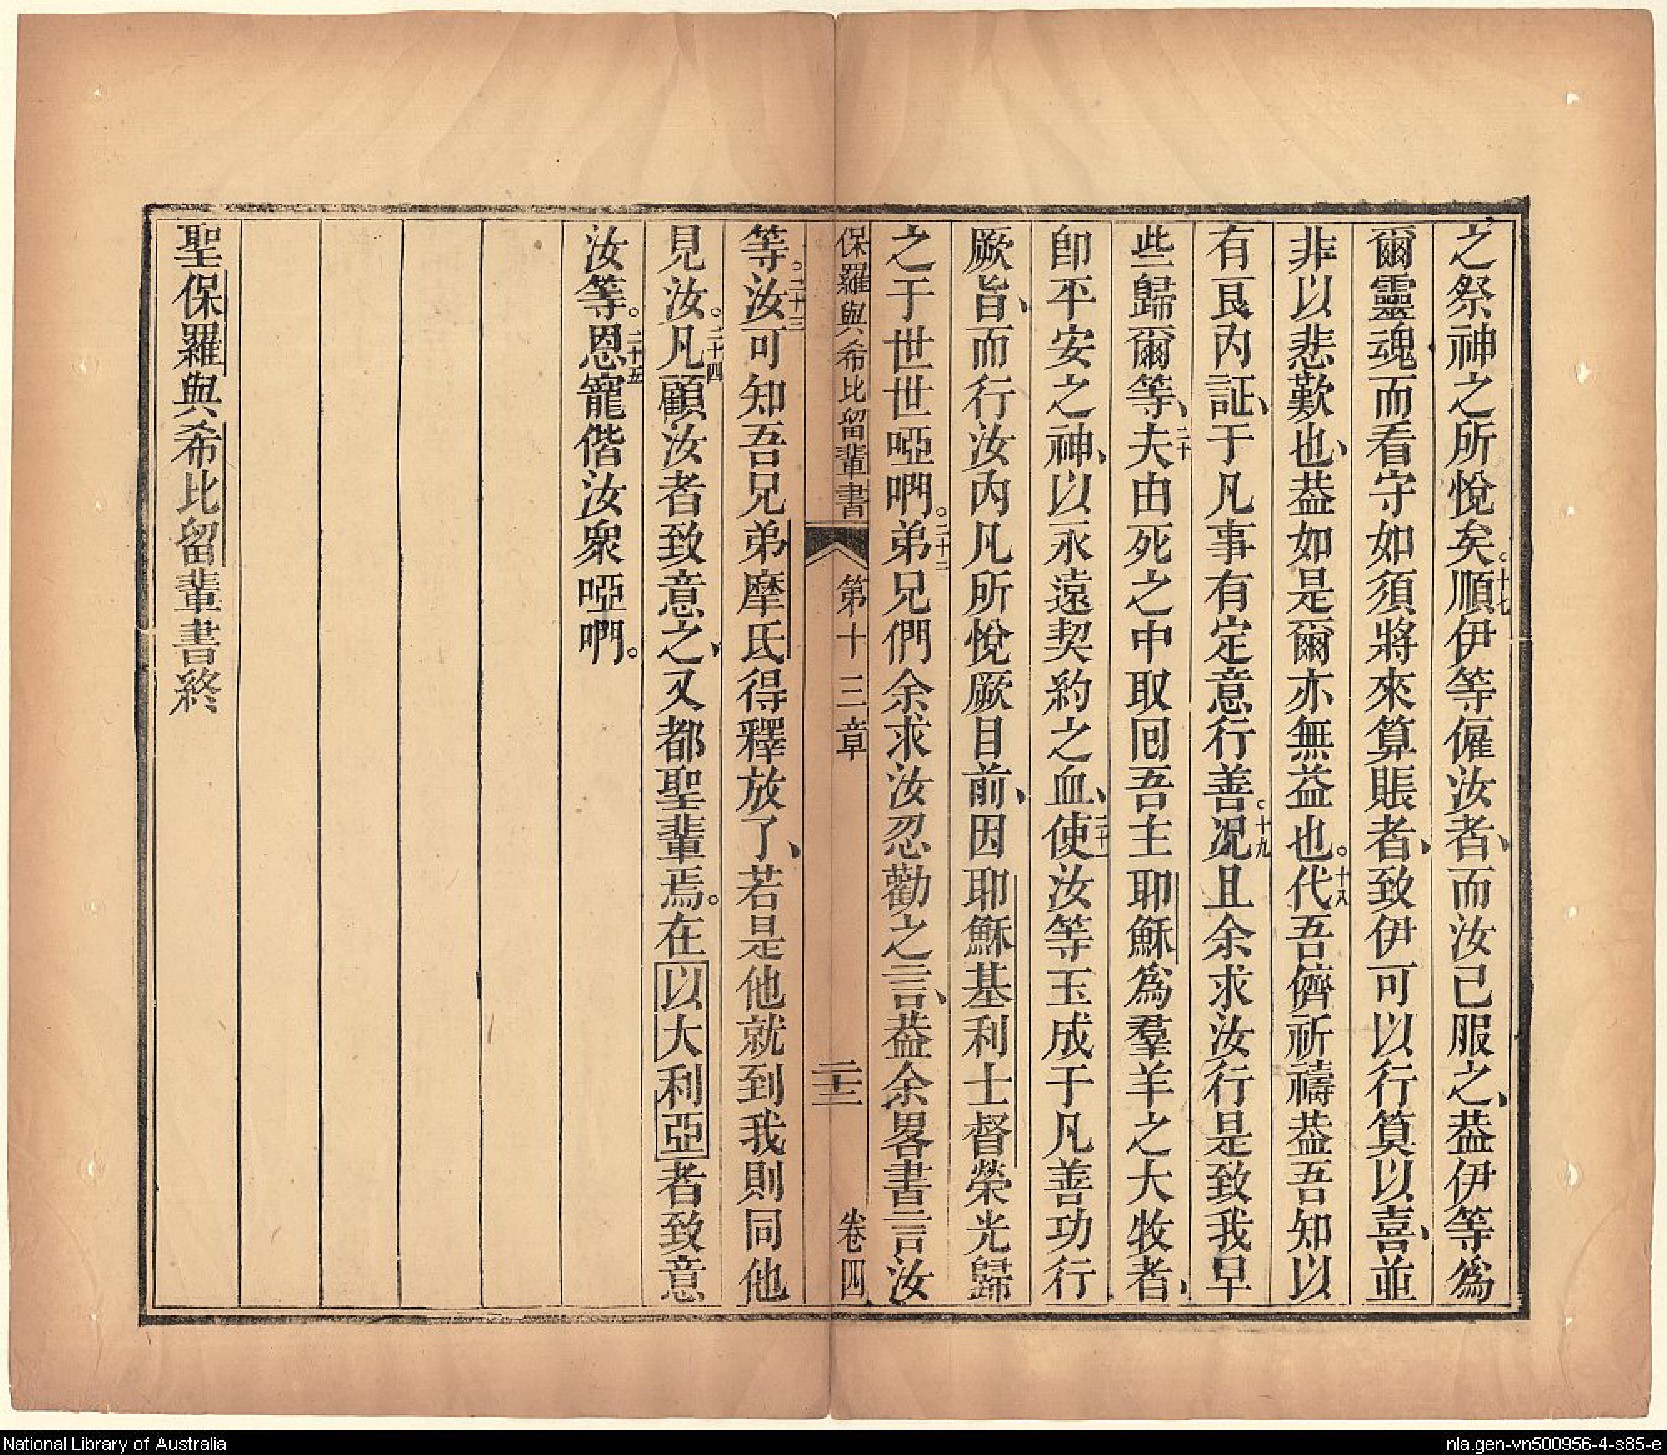 之祭神之所悅矣。十七順伊等僱汝者、而汝已服之、葢伊等爲
爾靈魂而看守如須將來算賬者、致伊可以行算以喜、並
非以悲歎也、葢如是爾亦無益也。十八代吾儕祈禱葢吾知以
有艮內証、于凡事有定意行善。十九况且余求汝行是致我早
些歸爾等、二十夫由死之中取回吾主耶穌爲羣羊之大牧者、
卽平安之神、以永遠契約之血、二十一使汝等玉成于凡善功行
厥旨、而行汝內凡所悅厥目前、因耶穌基利士督榮光歸
之于世世啞㗑。二十二弟兄們余求汝忍勸之言、葢余畧書言汝
保羅與希比留輩書 第十三章 二十三 卷四
等。二十三汝可知吾兄弟摩氐得釋放了、若是他就到我則同他
見汝。二十四凡顧汝者致意之、又都聖輩焉。在以大利亞者致意
汝等。二十五恩寵偕汝衆啞㗑。
聖保羅與希比留輩書終
National Library of Australia
nla.gen-vn500956-4-s85-e